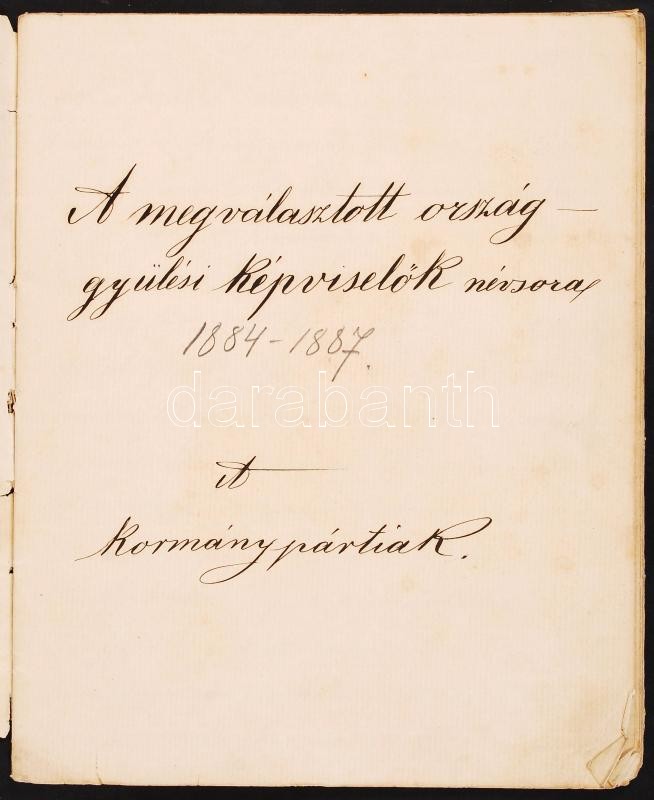 A megválasztott ország—
gyülési képviselők névsora
1884-1887.
darabanth
A
kormánypártiak.